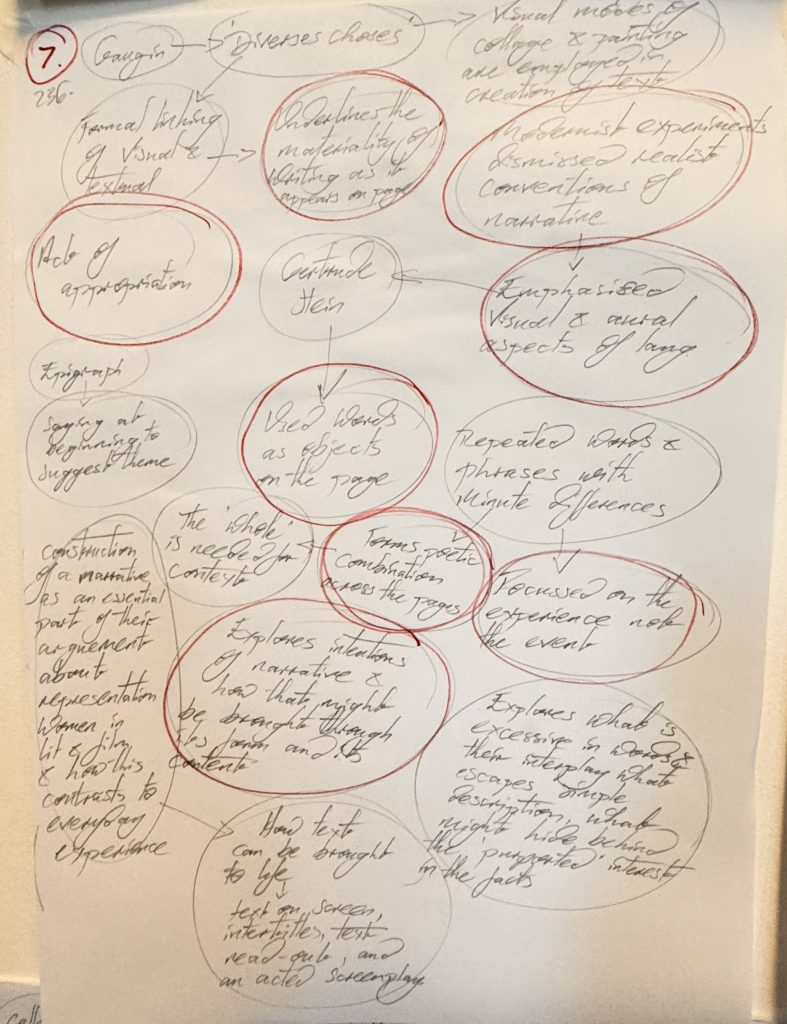 7.
236.
Gaugin
'Diverses choses'
Visual modes of
collage & painting
are employed in
creation of text
Formal linking
of visual &
textual
Underlines the
materiality of
writing as it
appears on page
Modernist experiments
dismissed realist
conventions of
narrative
Acts of
appropriation
Gertrude
Stein
Emphasized
visual & aural
aspects of lang.
Epigraph
Saying at
beginning to
suggest theme
Used words
as objects
on the page
Repeated words &
phrases with
minute differences
The 'whole'
is needed for
context
Forms poetic
combination
across the pages
Focussed on the
experience not
the event
construction
of a narrative
as an essential
part of their
arguement
about
representation
women in
lit & film
& how this
contrasts to
everyday
experience
Explores intentions
of narrative &
how that might
be brought through
its form and its
content
Explores what is
excessive in words &
their interplay what
escapes simple
description, what
might hide behind
the 'purported' interest
in the facts
How text
can be brought
to life
text on screen,
intertitles, text
read-out, and
an acted screenplay